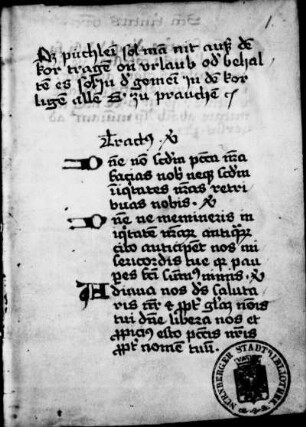 1.
Dz püchlein sol man nit auß dē
kor tragen on vrlaub od' behal
tē es sol in d' gomein in dē kor
ligen alle S. zu prauchē
Tractus
One nō scdm pcta nra
facias nob neqȝ scdm
iniqtates nras retri
buas nobis.
One ne memineris in
iqtatum nrar antiqr
cito anticipent nos mi
sericordie tue qr pau
pes fcti sumus nimis.
Adiuua nos ds saluta
ris nr et ppt glam nois
tui dne libera nos et
ppicius esto pctis nris
ppt nomen tuū.
NÜRNBERGER STADTBIBLIOTHEK